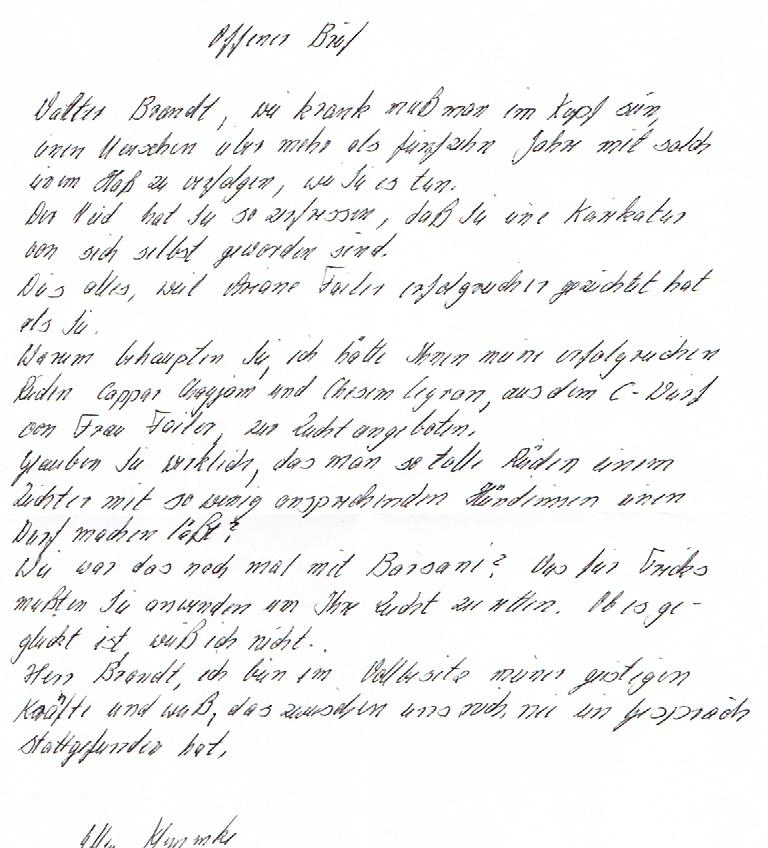 Offener Brief
Walter Brandt, wie krank muß man im Kopf sein,
einen Menschen über mehr als fünfzehn Jahre mit solch
einem Haß zu verfolgen, wie Sie es tun.
Der Neid hat Sie so zerfressen, daß Sie eine Karikatur
von sich selbst geworden sind.
Dies alles, weil Ariane Failer erfolgreicher gezüchtet hat
als Sie.
Warum behaupten Sie, ich hätte Ihnen meine erfolgreichen
Rüden Cappar Chayjam und aus dem C-Wurf
von Frau Failer, zur Zucht angeboten.
Glauben Sie wirklich, das man so tolle Rüden einem
Züchter mit so wenig ansprechenden Hündinnen einen
Wurf machen läßt?
Wie war das noch mal mit Barsani? Was für Tricks
mußten Sie anwenden um Ihre Zucht zu retten. Ob es ge-
glückt ist, weiß ich nicht.
Herr Brandt, ich bin im Vollbesitz meiner geistigen
Kräfte und weiß, das zwischen uns noch nie ein Gespräch
stattgefunden hat,